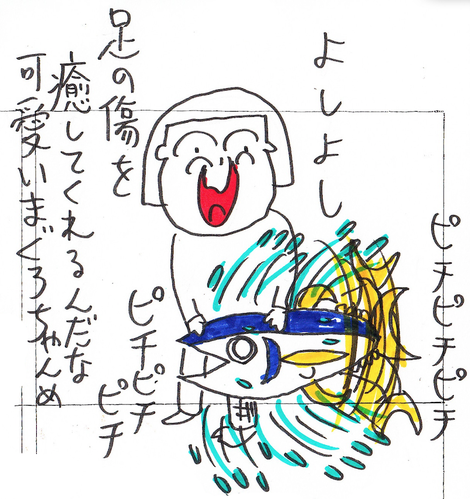 よしよし
足の傷を
癒してくれるんだな
可愛いまぐろちゃんめ
ピチピチピチ
ピチピチ
ピチ